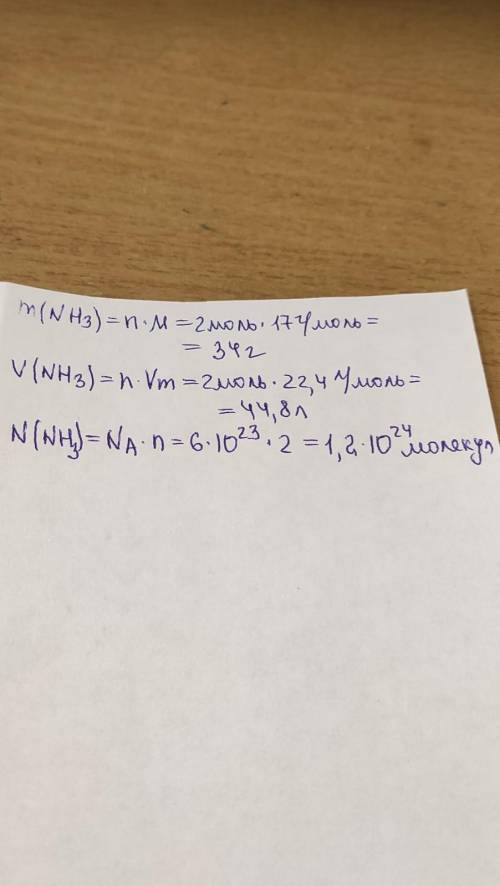 m(NH3)=n·M=2моль·17г/моль=
=34г
V(NH3)=n·Vm=2моль·22,4л/моль=
=44,8л
N(NH3)=NA·n=6·10²³·2=1,2·10²⁴молекул